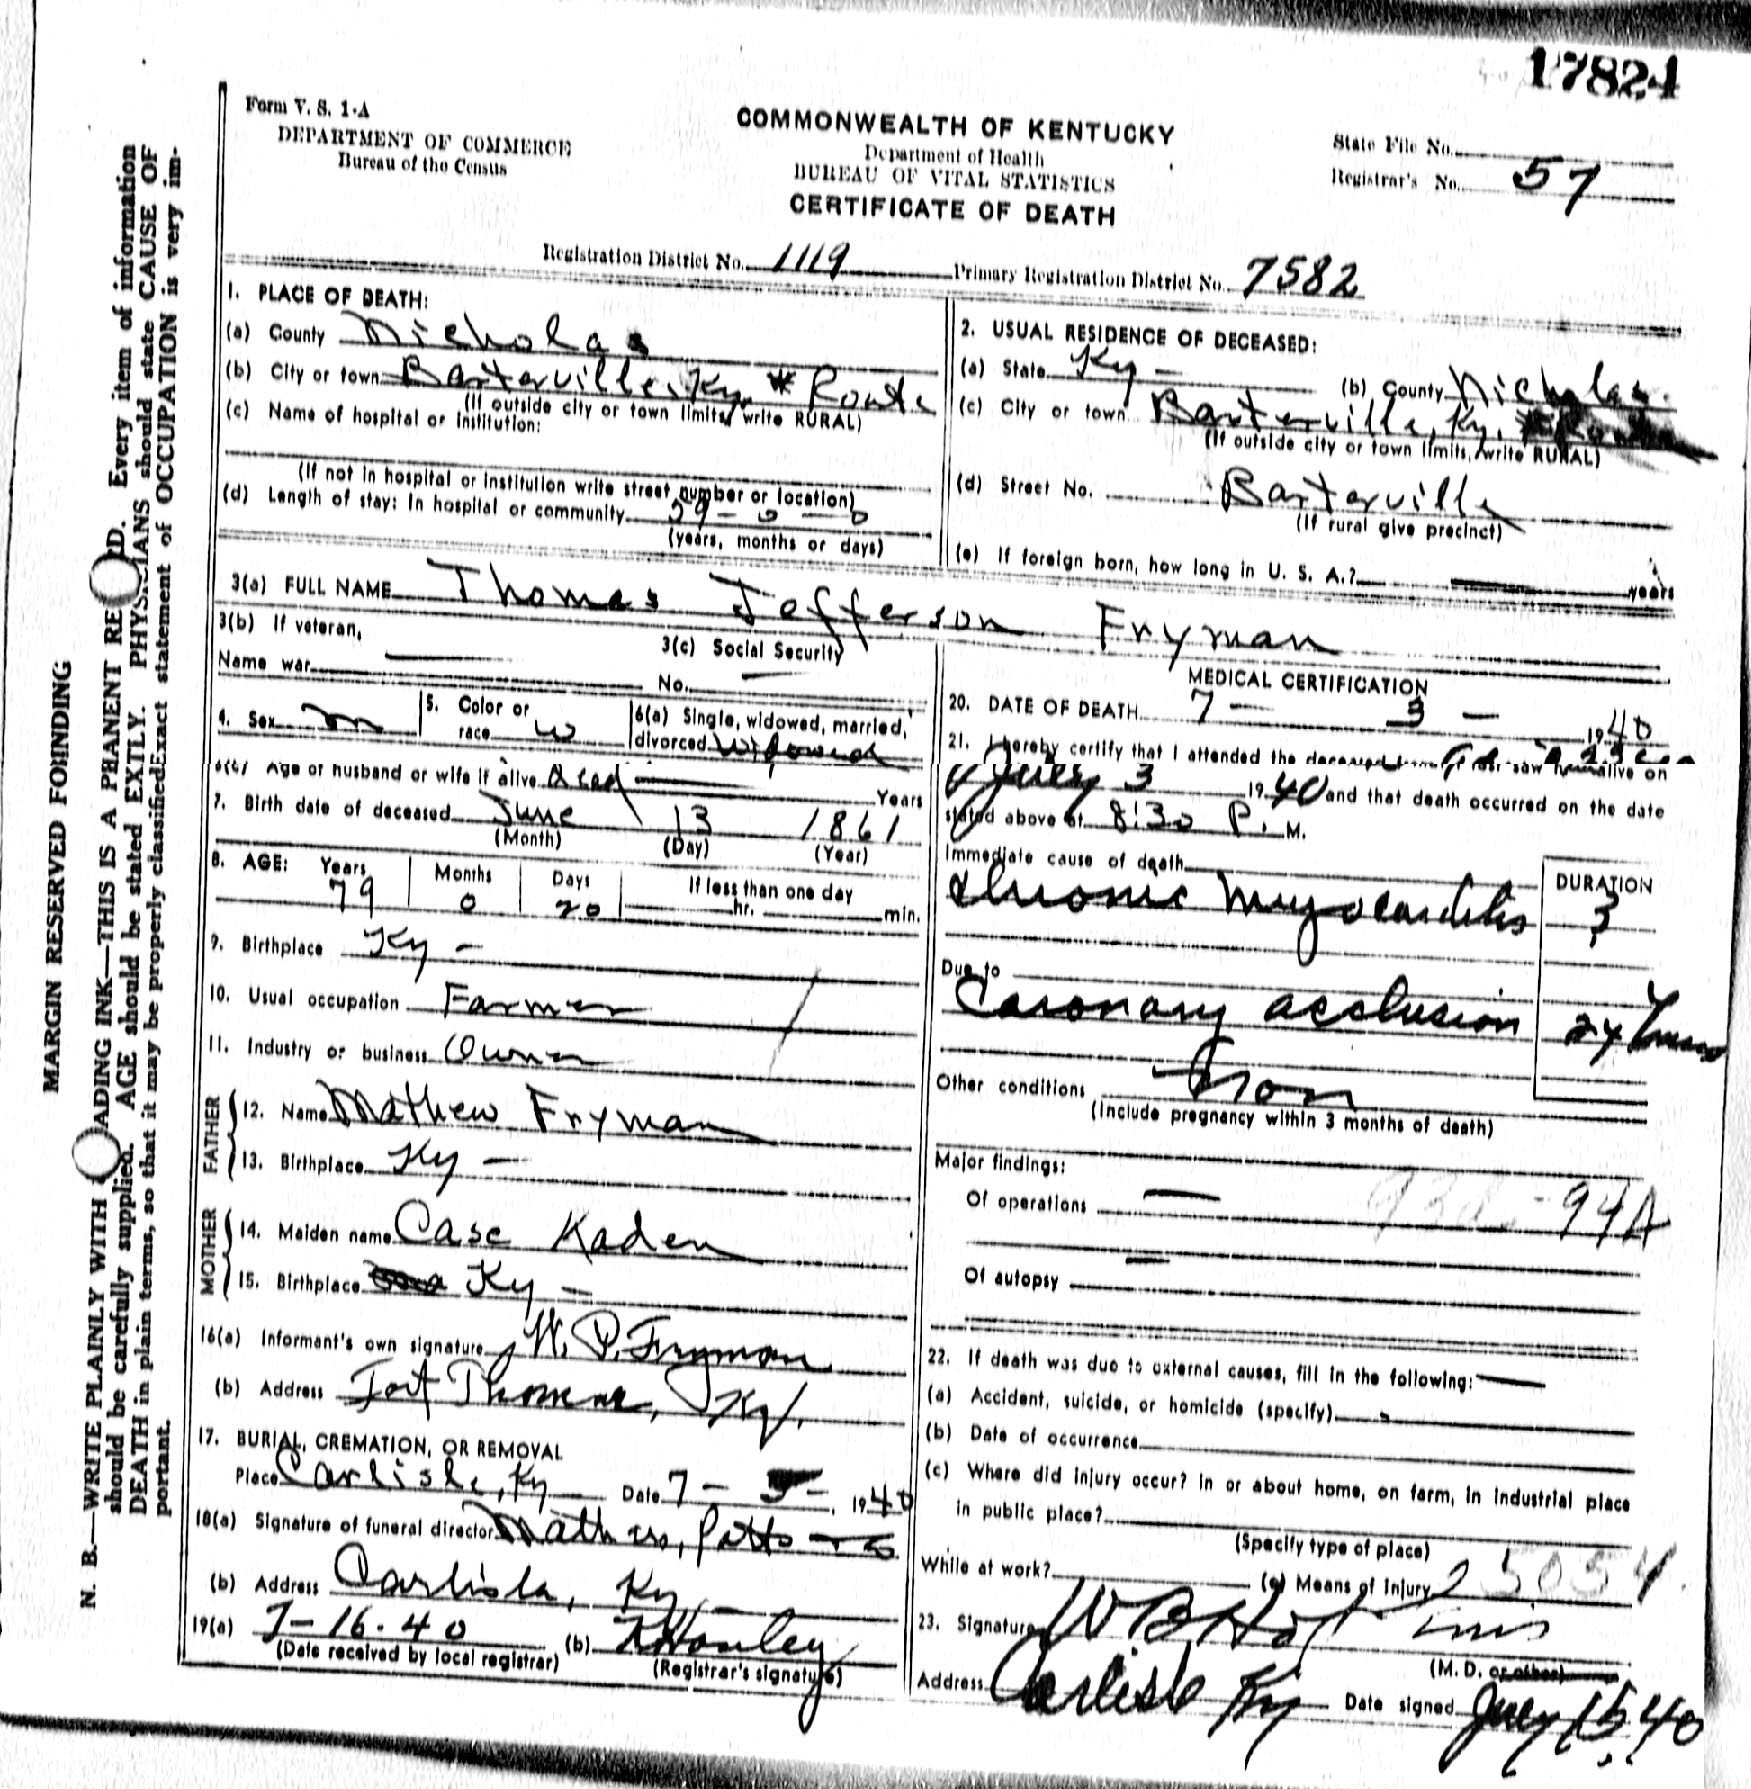 17824
Form V. S. 1-A
DEPARTMENT OF COMMERCE
Bureau of the Census
COMMONWEALTH OF KENTUCKY
Department of Health
BUREAU OF VITAL STATISTICS
CERTIFICATE OF DEATH
State File No.
Registrar's No. 57
Registration District No. 1119 Primary Registration District No. 7582
MARGIN RESERVED FO INDING
N. B.—WRITE PLAINLY WITH ADING INK—THIS IS A P MANENT RE D. Every item of information
should be carefully supplied. AGE should be stated EX TLY. PHYSICIANS should state CAUSE OF
DEATH in plain terms, so that it may be properly classified Exact statement of OCCUPATION is very im-
portant.
1. PLACE OF DEATH:
(a) County Nicholas
(b) City or town Barterville, Ky # Route
(If outside city or town limits, write RURAL)
(c) Name of hospital or institution:
(If not in hospital or institution write street number or location)
(d) Length of stay: In hospital or community 59 - 0 - 0
(years, months or days)
2. USUAL RESIDENCE OF DECEASED:
(a) State Ky - (b) County Nicholas.
(c) City or town Barterville, Ky,
(If outside city or town limits, write RURAL)
(d) Street No. Barterville
(If rural give precinct)
(e) If foreign born, how long in U. S. A.? years
3(a) FULL NAME Thomas Jefferson Fryman
3(b) If veteran,
Name war
3(c) Social Security
No. —
4. Sex m
5. Color or
race w
6(a) Single, widowed, married,
divorced Widowed
Age or husband or wife if alive dead Years
7. Birth date of deceased June 13 1861
(Month) (Day) (Year)
8. AGE: Years Months Days If less than one day
79 0 20 hr. min.
9. Birthplace Ky -
10. Usual occupation Farmer
11. Industry or business Owner
FATHER
12. Name Mathew Fryman
13. Birthplace Ky -
MOTHER
14. Maiden name Case Kaden
15. Birthplace Ky -
16(a) Informant's own signature W. P. Fryman
(b) Address Fort Thomas, Ky.
17. BURIAL, CREMATION, OR REMOVAL
Place Carlisle, Ky Date 7 - 5 - 1940
18(a) Signature of funeral director Mathers, Potts
(b) Address Carlisle, Ky
19(a) 7-16-40 (b) Hanley
(Date received by local registrar) (Registrar's signature)
MEDICAL CERTIFICATION
20. DATE OF DEATH 7 - 3 - 1940
21. I hereby certify that I attended the deceased
saw alive on
July 3 1940 and that death occurred on the date
stated above at 8:30 P. M.
Immediate cause of death
DURATION
Chronic Myocarditis ?
Due to
Coronary occlusion 24
Other conditions
(Include pregnancy within 3 months of death)
Major findings:
Of operations — 94A
Of autopsy —
22. If death was due to external causes, fill in the following:
(a) Accident, suicide, or homicide (specify)
(b) Date of occurrence
(c) Where did injury occur? In or about home, on farm, in industrial place
in public place?
(Specify type of place)
While at work? (e) Means of Injury
23. Signature W B
(M. D. or other)
Address Carlisle Ky Date signed July 15, 40